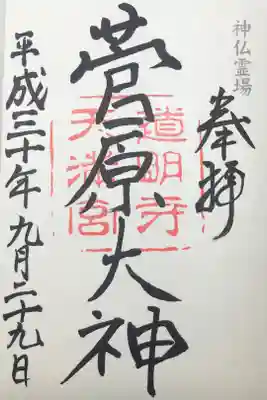 神仏霊場
奉拝
菅原大神
道明寺
天満宮
平成三十年九月二十九日